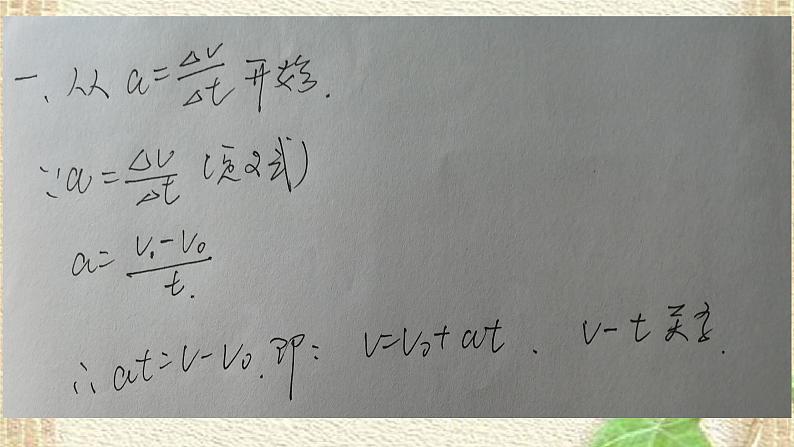 一、从 a=Δv/Δt 开始.
∵a=Δv/Δt (定义式)
a=(v.-v₀)/t.
∴at=v-v₀. 即: v=v₀+at. v-t关系.